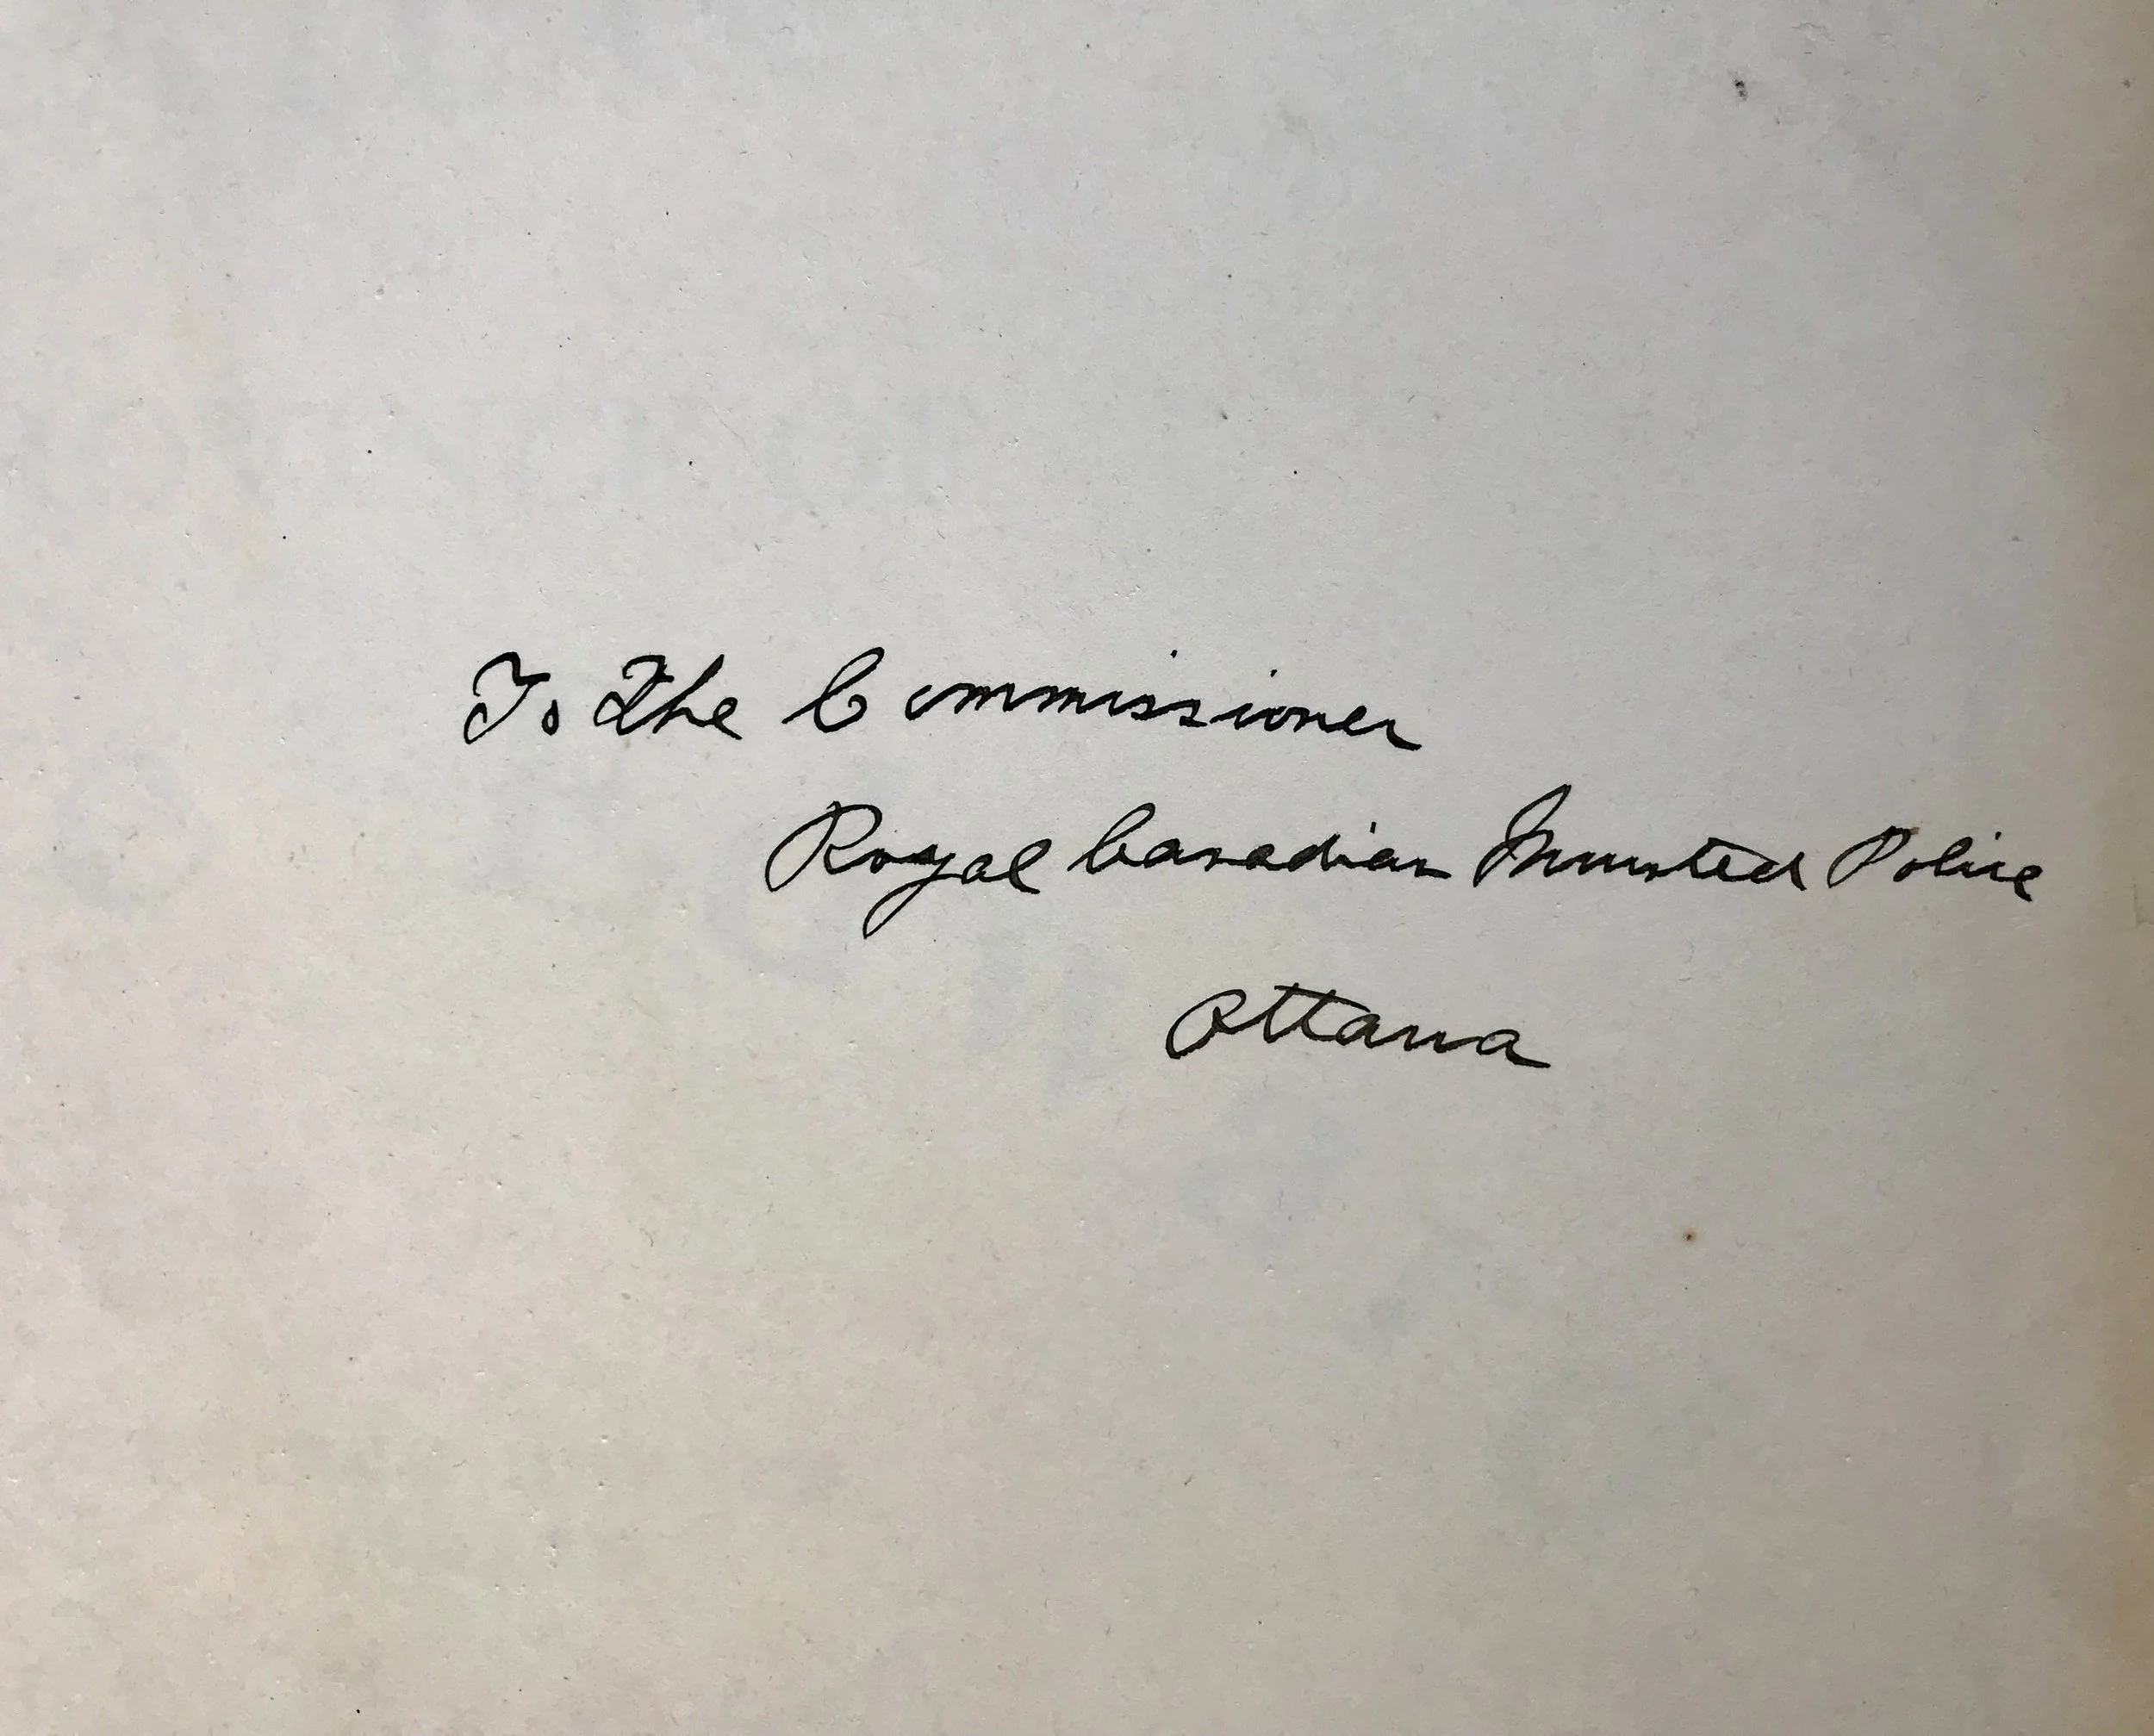 To The Commissioner
Royal Canadian Mounted Police
Ottawa